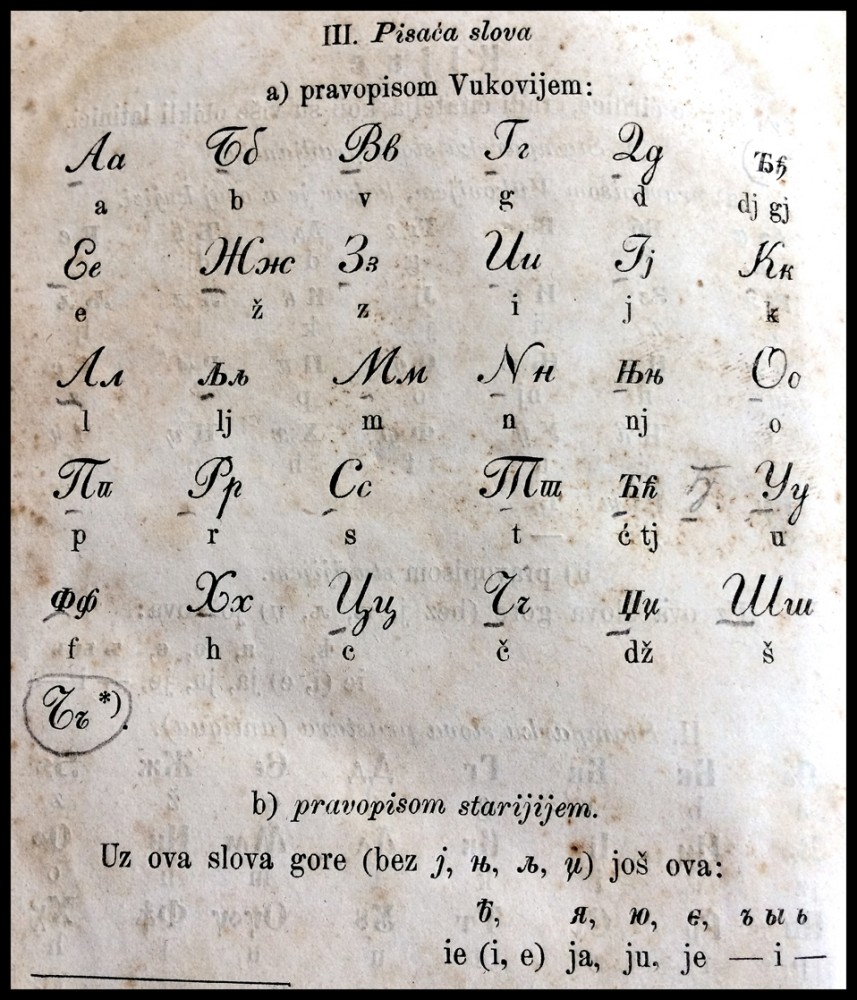 III. Pisaća slova
a) pravopisom Vukovijem:
Аа Бб Вв Гг Дд Ђђ
a b v g d dj gj
Ее Жж Зз Ии Јј Кк
e ž z i j k
Лл Љљ Мм Nн Њњ Оо
l lj m n nj o
Пп Рр Сс Тт Ћћ Ђ. Уу
p r s t ć tj u
Фф Хх Цц Чч Џџ Шш
f h c č dž š
Ъъ *).
b) pravopisom starijijem.
Uz ova slova gore (bez ј, њ, љ, џ) još ova:
ѣ, я, ю, є, ъ ы ь
ie (i, e) ja, ju, je — i —